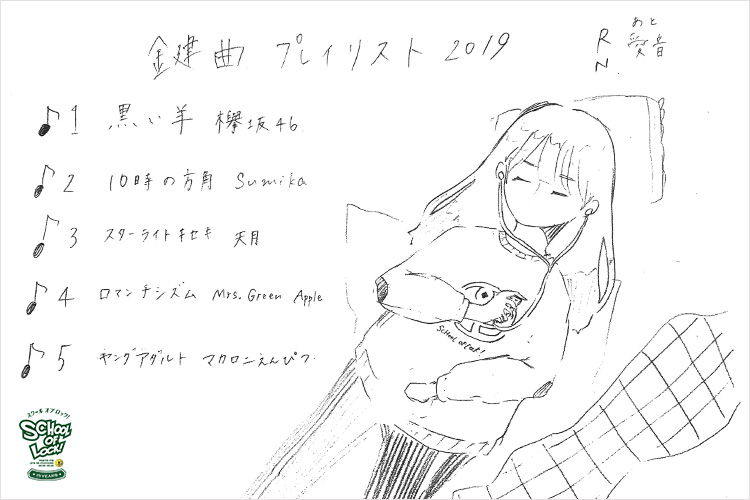 鍵曲 プレイリスト 2019
あと
RN. 愛音
1 黒い羊 欅坂46
2 10時の方角 Sumika
3 スターライトキセキ 天月
4 ロマンチシズム Mrs. Green Apple
5 ヤングアダルト マカロニえんぴつ
School of Lock!
スクール オブ ロック!
SCHOOL OF LOCK!